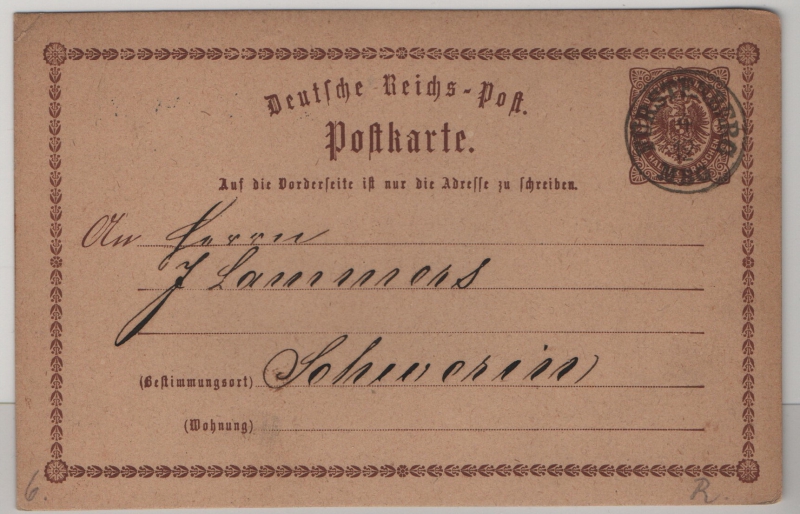 Deutsche Reichs-Post.
Postkarte.
Auf die Vorderseite ist nur die Adresse zu schreiben.
FÜRSTENBERG
An Herrn
J Lammers
(Bestimmungsort) Schwerin
(Wohnung)
6.
R.